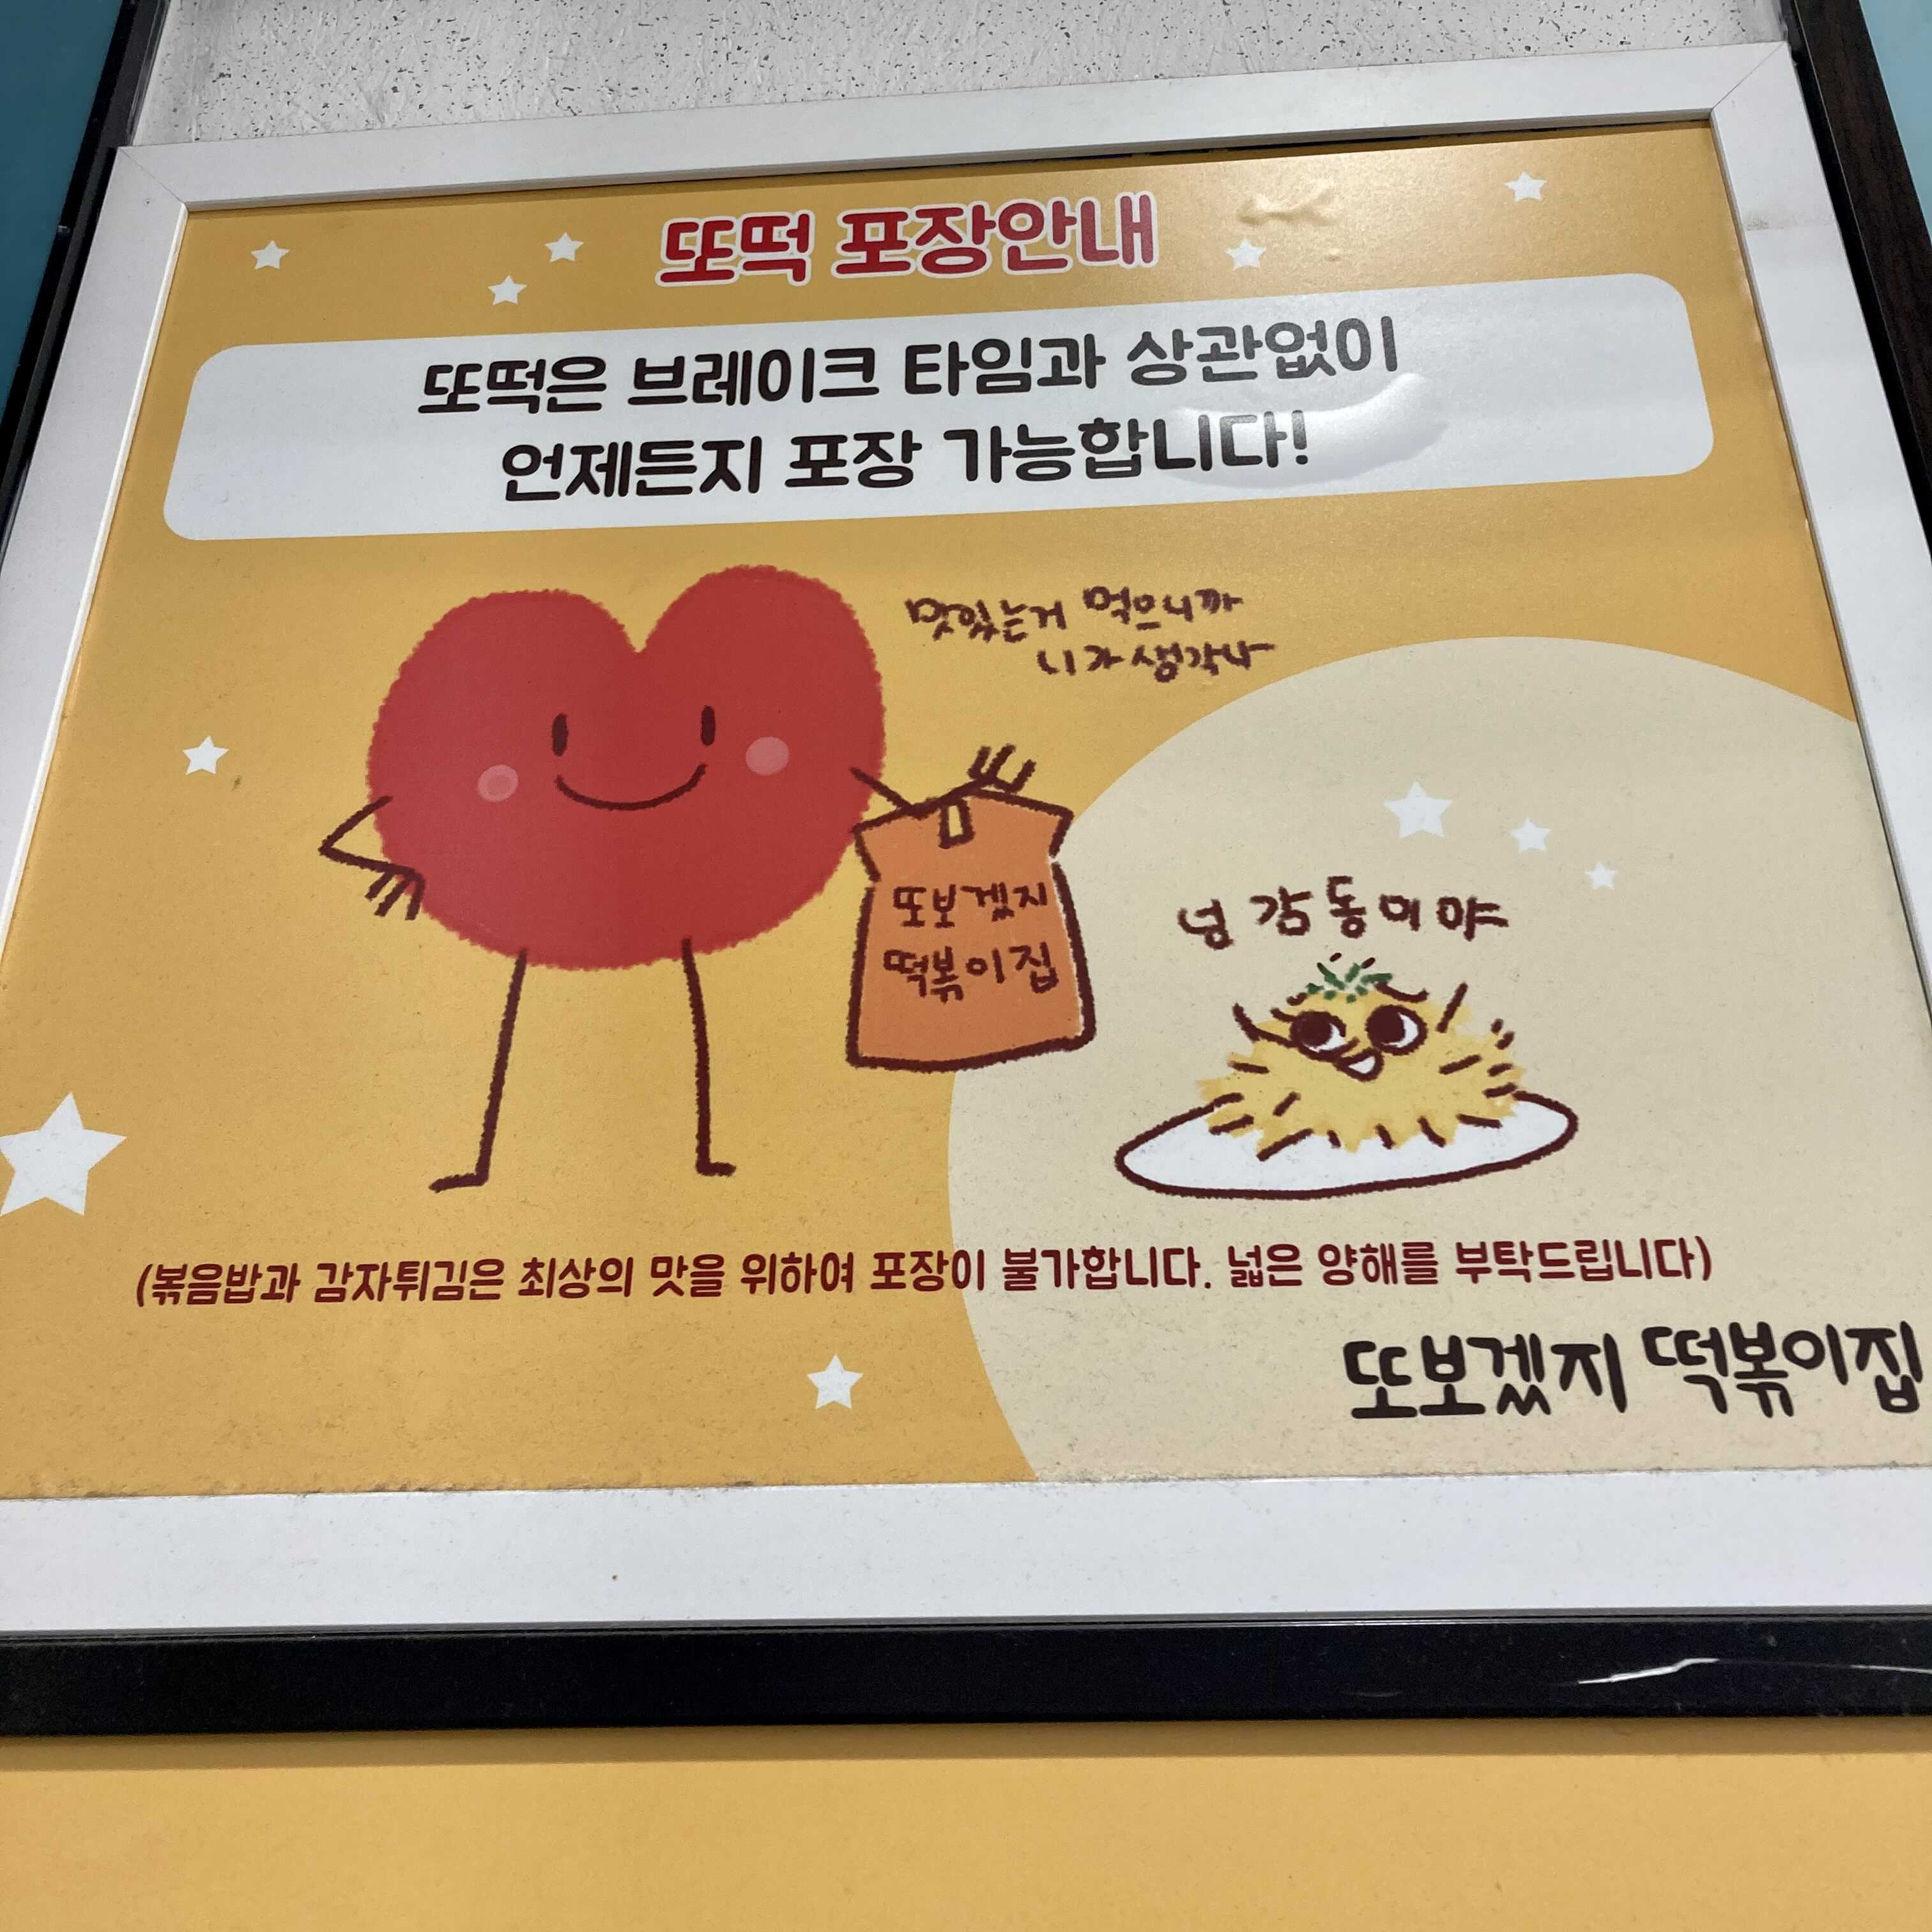 또떡 포장안내
또떡은 브레이크 타임과 상관없이
언제든지 포장 가능합니다!
맛있는거 먹으니까
니가 생각나
또보겠지
떡볶이집
넘 감동이야
(볶음밥과 감자튀김은 최상의 맛을 위하여 포장이 불가합니다. 넓은 양해를 부탁드립니다)
또보겠지 떡볶이집